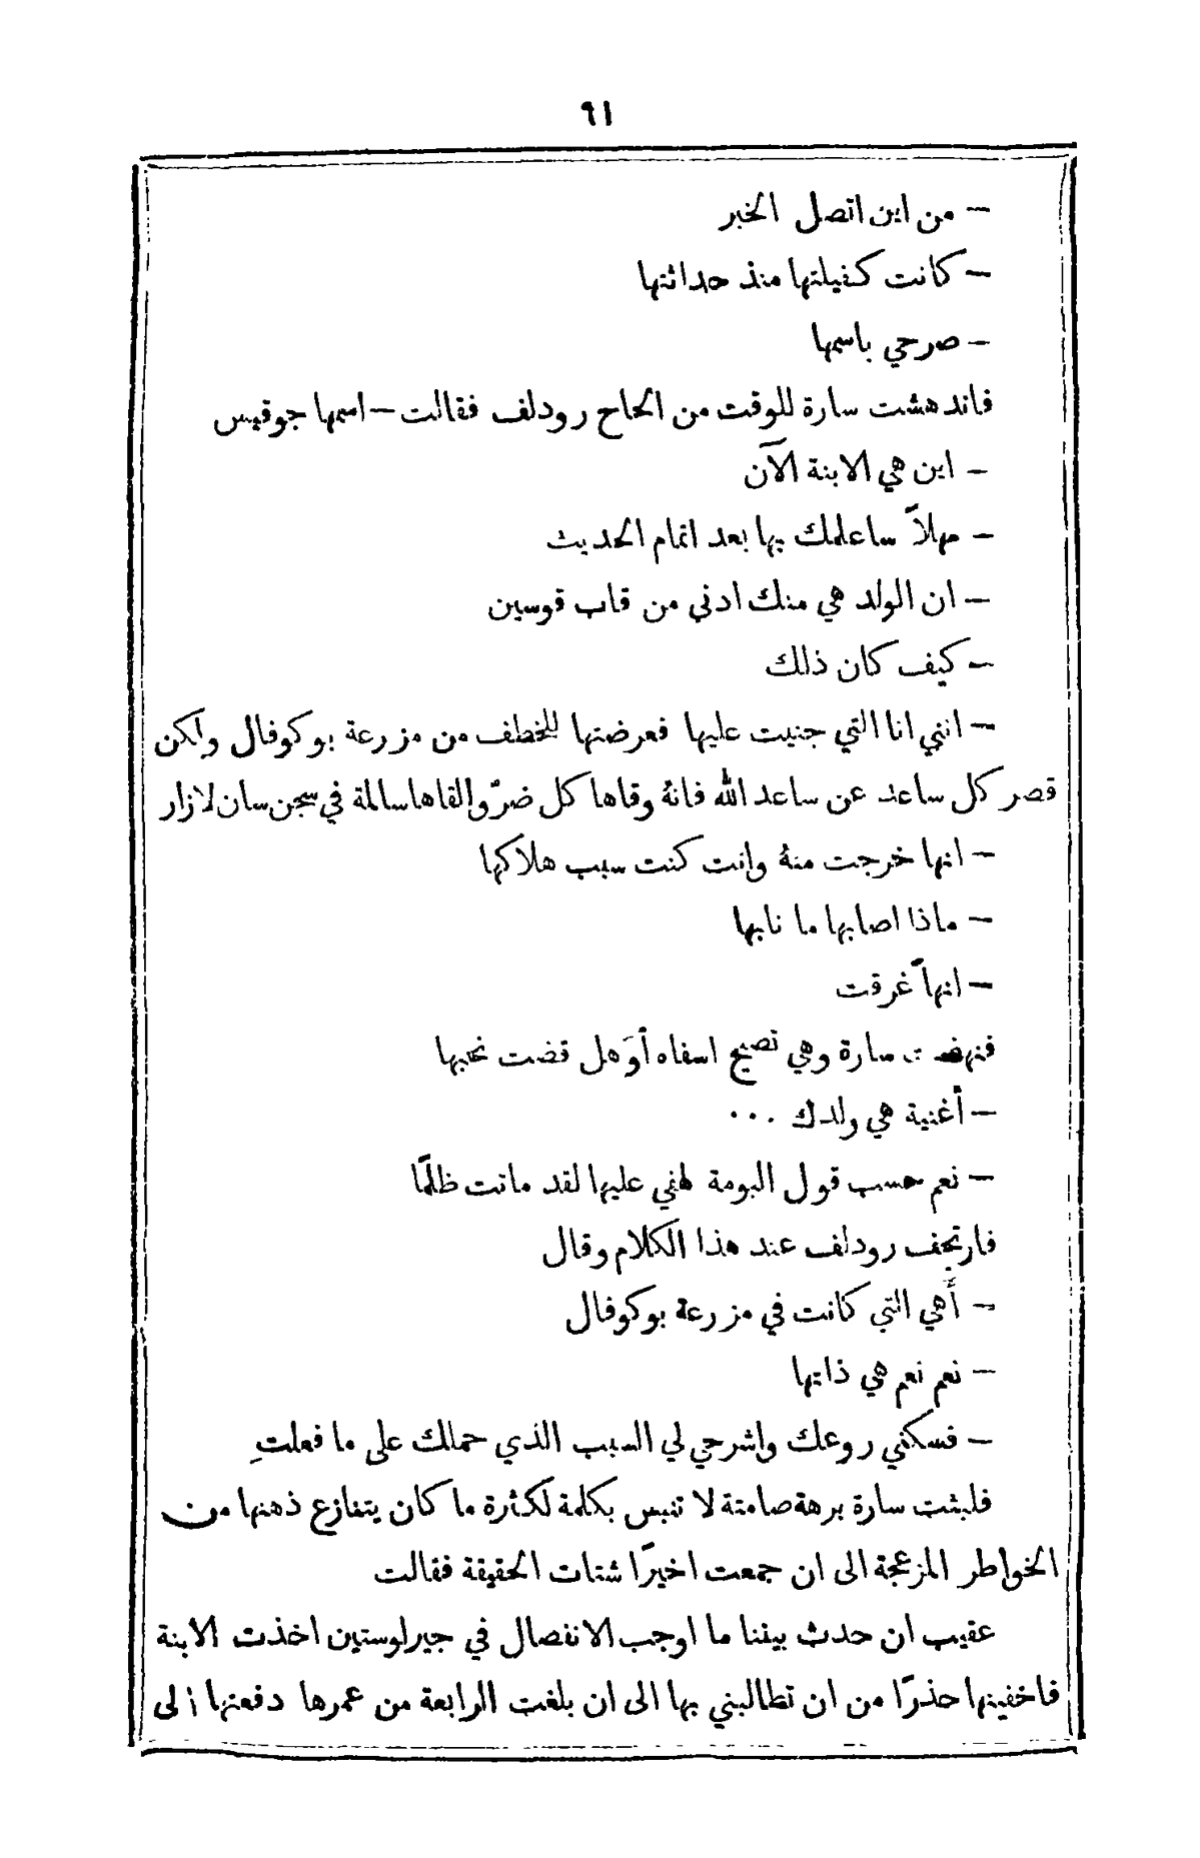 ٦١
— من اين اتصل الخبر
— كانت كفيلتها منذ حداثتها
— صرحي باسمها
فاندهشت سارة للوقت من الحاح رودلف فقالت — اسمها جوقيس
— اين هي الابنة الآن
— مهلاً ساعلمك بها بعد اتمام الحديث
— ان الولد هي منك ادنى من قاب قوسين
— كيف كان ذلك
— انني انا التي جنيت عليها فعرضتها للخطف من مزرعة بوكوفال ولكن
قصر كل ساعد عن ساعد الله فانهُ وقاها كل ضرّ والقاها سالمة في سجن سان لازار
— انها خرجت منهُ وانت كنت سبب هلاكها
— ماذا اصابها ما نابها
— انها غرقت
فنهضت سارة وهي تصيح اسفاه أوَهل قضت نحبها
— أغنية هي ولدك ...
— نعم حسب قول البومة لهفي عليها لقد ماتت ظلمًا
فارتجف رودلف عند هذا الكلام وقال
— أَهي التي كانت في مزرعة بوكوفال
— نعم نعم هي ذاتها
— فسكني روعك واشرحي لي السبب الذي حملك على ما فعلتِ
فلبثت سارة برهة صامتة لا تنبس بكلمة لكثرة ما كان يتنازع ذهنها من
الخواطر المزعجة الى ان جمعت اخيرًا شتات الحقيقة فقالت
عقيب ان حدث بيننا ما اوجب الانفصال في جيرلوستين اخذت الابنة
فاخفيتها حذرًا من ان تطالبني بها الى ان بلغت الرابعة من عمرها دفعتها الى